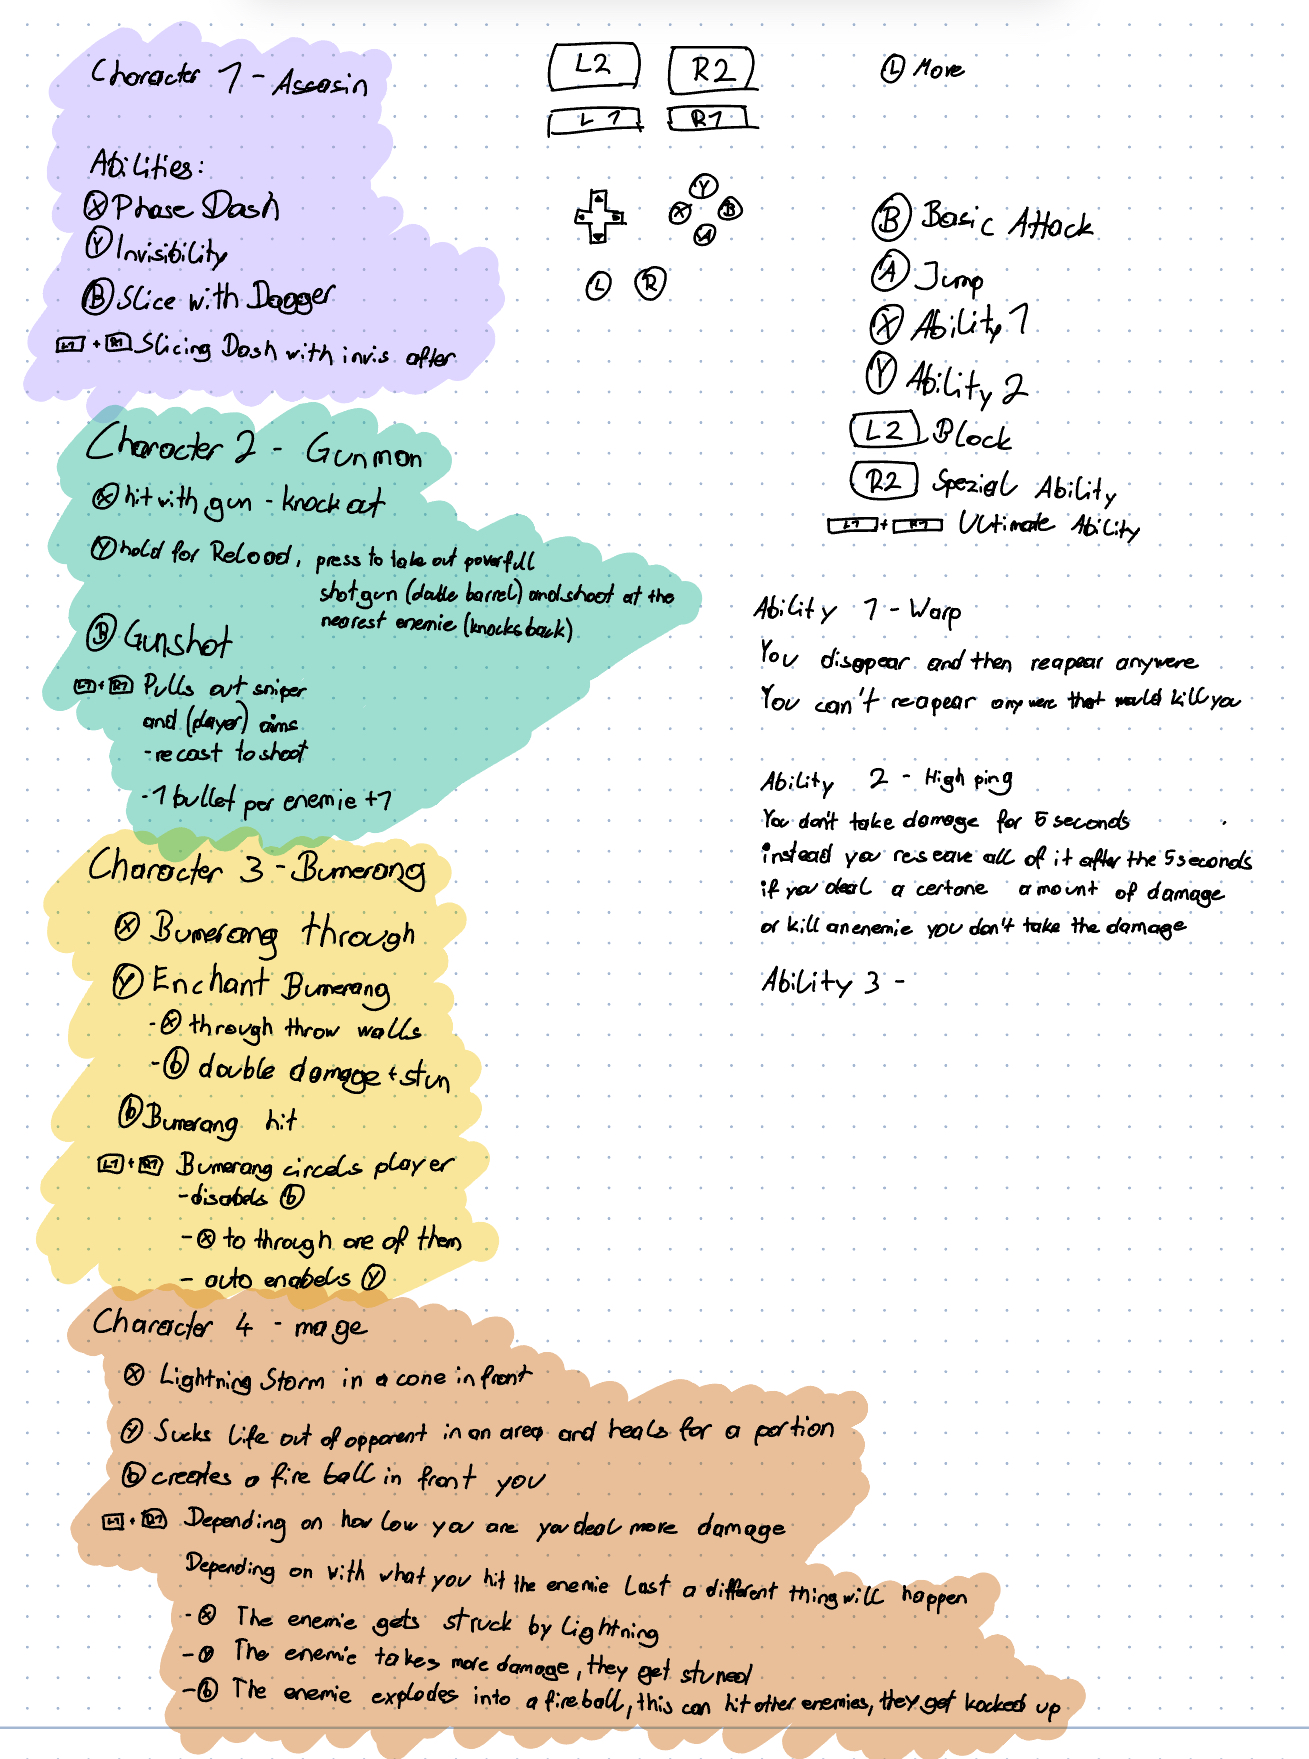 Character 1 - Assasin
Abilities:
Ⓧ Phase Dash
Ⓨ Invisibility
Ⓑ Slice with Dagger
L1 + R1 Slicing Dash with invis after
Character 2 - Gunman
Ⓧ hit with gun - knock out
Ⓨ hold for Reload, press to take out powerfull
shotgun (double barrel) and shoot at the
nearest enemie (knocks back)
Ⓑ Gunshot
L1 + R1 Pulls out sniper
and (player) aims
- recast to shoot
- 1 bullet per enemie +1
Character 3 - Bumerang
Ⓧ Bumerang through
Ⓨ Enchant Bumerang
- Ⓧ through throw walls
- ⓑ double damage + stun
ⓑ Bumerang hit
L1 + R1 Bumerang circels player
- disabels ⓑ
- Ⓧ to through one of them
- auto enabels Ⓨ
Character 4 - mage
Ⓧ Lightning Storm in a cone in front
Ⓨ Sucks life out of opparent in an area and heals for a portion
ⓑ creates a fire ball in front you
L1 + R1 Depending on how low you are you deal more damage
Depending on with what you hit the enemie last a different thing will happen
- Ⓧ The enemie gets struck by lightning
- Ⓨ The enemie takes more damage, they get stuned
- ⓑ The enemie explodes into a fireball, this can hit other enemies, they get kocked up
L2 R2
L1 R1
Ⓨ
Ⓧ Ⓑ
Ⓐ
Ⓛ Ⓡ
Ⓛ Move
Ⓑ Basic Attack
Ⓐ Jump
Ⓧ Ability 1
Ⓨ Ability 2
L2 Block
R2 Spezial Ability
L1 + R1 Ultimate Ability
Ability 1 - Warp
You disapear and then reapear anywere
You can't reapear anywere that would kill you
Ability 2 - High ping
You don't take damage for 5 seconds
instead you reseave all of it after the 5 seconds
if you deal a certane amount of damage
or kill an enemie you don't take the damage
Ability 3 -